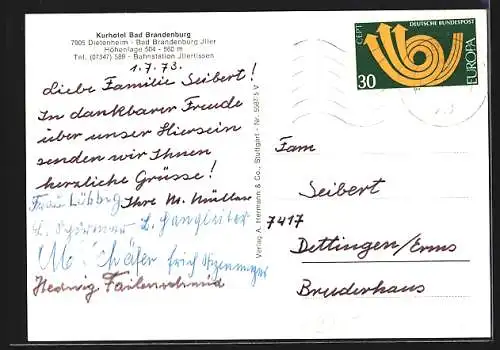 Kurhotel Bad Brandenburg
7905 Dietenheim - Bad Brandenburg Jller
Höhenlage 504 - 560 m
Tel. (07347) 589 - Bahnstation Jllertissen
1.7.73.
Liebe Familie Seibert!
In dankbarer Freude
über unser Hiersein
senden wir Ihnen
herzliche Grüsse!
Ihre M. Müller
Frau
L. Gengleiter
M. Schäfer Erich
Hedwig
Verlag A. Hermann & Co., Stuttgart - Nr.
CEPT
DEUTSCHE BUNDESPOST
EUROPA
30
Fam
Seibert
7417
Dettingen/Erms
Bruderhaus